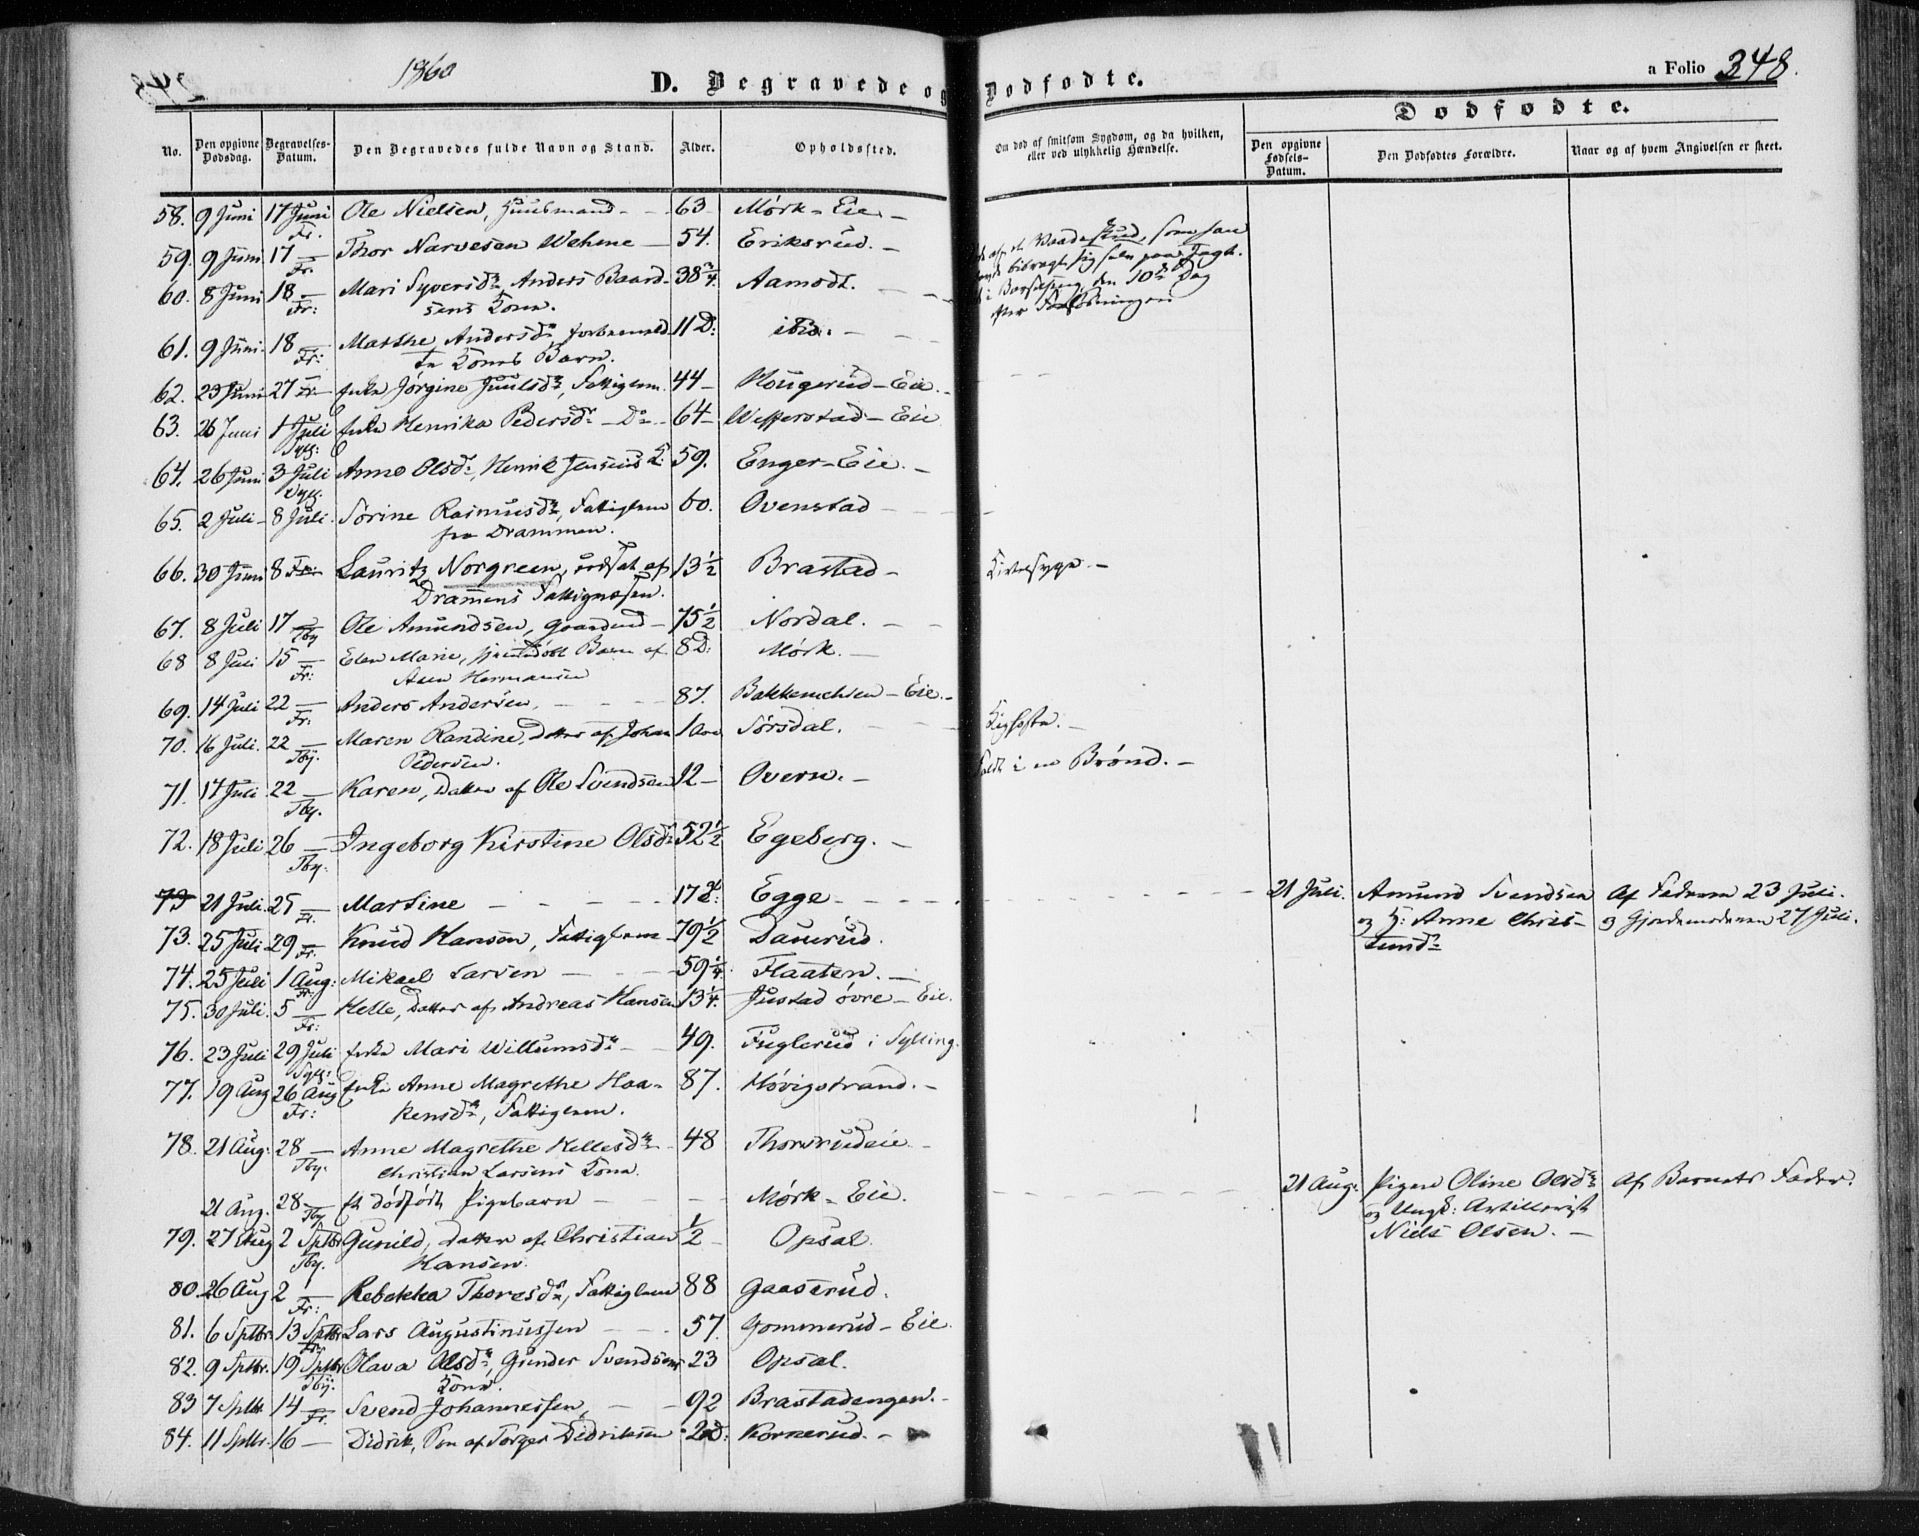 1860
D. Begravede og Dødfødte.
a Folio 348.
Dødfødte.
No.
Den opgivne Dødsdag.
Begravelses-Datum.
Den Begravedes fulde Navn og Stand.
Alder.
Opholdssted.
Om død af smitsom Sygdom, og da hvilken, eller ved ulykkelig Hændelse.
Den opgivne Fødsels-Datum.
Den Dødfødtes Forældre.
Naar og af hvem Angivelsen er skeet.
58. 9 Juni 17 Juni Fr. Ole Nielsen, Huusmand 63 Mørk-Eie
59. 9 Juni 17 Fr. Thor Narvesen Wehme 54. Eriksrud. Vaadeskud, som han
bibragt sig selv paa Jagt.
60. 8 Juni 18 Fr: Mari Syversdr, Anders Baard-
sens Kone. 38 3/4. Aamodt. i Barselseng, den 10de Dag
efter Forløsningen
61. 9 Juni 18 Fr: Marthe Andersdr, forbemeld-
te Kones Barn. 11 D: ibid.
62. 23 Juni 27 Fr. Enke Jørgine Juulsdr, Fattiglem 44 Hougerud-Eie.
63. 26 Juni 1 Juli Syll: Enke Henrika Pedersdr Do 64 Wefferstad-Eie
64. 26 Juni 3 Juli Syll. Anne Olsdr, Henrik Jensens K: 59. Enger-Eie.
65. 2 Juli 8 Juli. Sørine Rasmusdr, Fattiglem
fra Drammen. 60. Ovenstad
66. 30 Juni 8 Fr: Lauritz Norgreen, udsat af
Dramens Fattigvæsen. 13 1/2 Brastad Kirtelsyge.
67. 8 Juli 17 Tby Ole Amundsen, Gaardmd 75 1/2 Nordal.
68 8 Juli 15 Fr: Elen Marie, hjemmedøbt Barn af
Hermansen 8 D: Mørk.
69. 14 Juli 22 Fr: Anders Andersen, 87. Eie.
70. 16 Juli. 22 Tby. Maren Randine, Datter af Johan
Pedersen. 1 Sørsdal. Kighoste.
71. 17 Juli 22 Tby. Karen, Datter af Ole Svendsen 12 Overn. Faldt i en Brønd.
72. 18 Juli 26 Tby. Ingeborg Kirstine Olsdr 52 1/2 Egeberg.
73 21 Juli. 25 Fr. Martine 17 Egge 21 Juli. Amund Svendsen Af Faderen 23 Juli.
og K: Anne Chris- og Gjordemoderen 27 Juli.
tensdr
73. 25 Juli 29 Fr. Knud Hansen, Fattiglem 79 1/2 Daverud.
74. 25 Juli 1 Aug: Fr. Mikael Larsen 59 1/4. Flaaten.
75. 30 Juli. 5 Fr: Helle, Datter af Andreas Hansen 13 1/4. Justad øvre-Eie.
76. 23 Juli 29 Juli Syll: Enke Mari Willumsdr 49. Fuglerud i Sylling.
77. 19 Aug 26 Aug Fr: Enke Anne Magrethe Haa-
kensdr, Fattiglem. 87. Høvigstrand.
78. 21 Aug: 28 Tby. Anne Magrethe Hellesdr
Christian Larsens Kone. 48 Thorsrudeie
21 Aug. 28 Tby Et dødfødt Pigebarn Mørk-Eie. 21 Aug: Pigen Oline Olsdr Af Barnets Fader.
og Ungk: Artillerist
Niels Olsen.
79. 27 Aug 2 Sptbr Tby. Gunild, Datter af Christian
Hansen. 1/2 Opsal.
80. 26 Aug 2 Fr: Rebekka Thoresdr, Fattiglem 88 Gaaserud.
81. 6 Sptbr. 13 Sptbr Fr. Lars Augustinussen 57. Gommerud-Eie
82. 9 Sptbr. 19 Sptbr Tby. Olava Olsdr, Gunder Svendsens
Kone. 23 Opsal.
83 7 Sptbr 14 Fr. Svend Johannessen, 92 Brastadengen.
84. 11 Sptbr. 16 Didrik, Søn af Torger Didriksen 2 D: Kornerud.